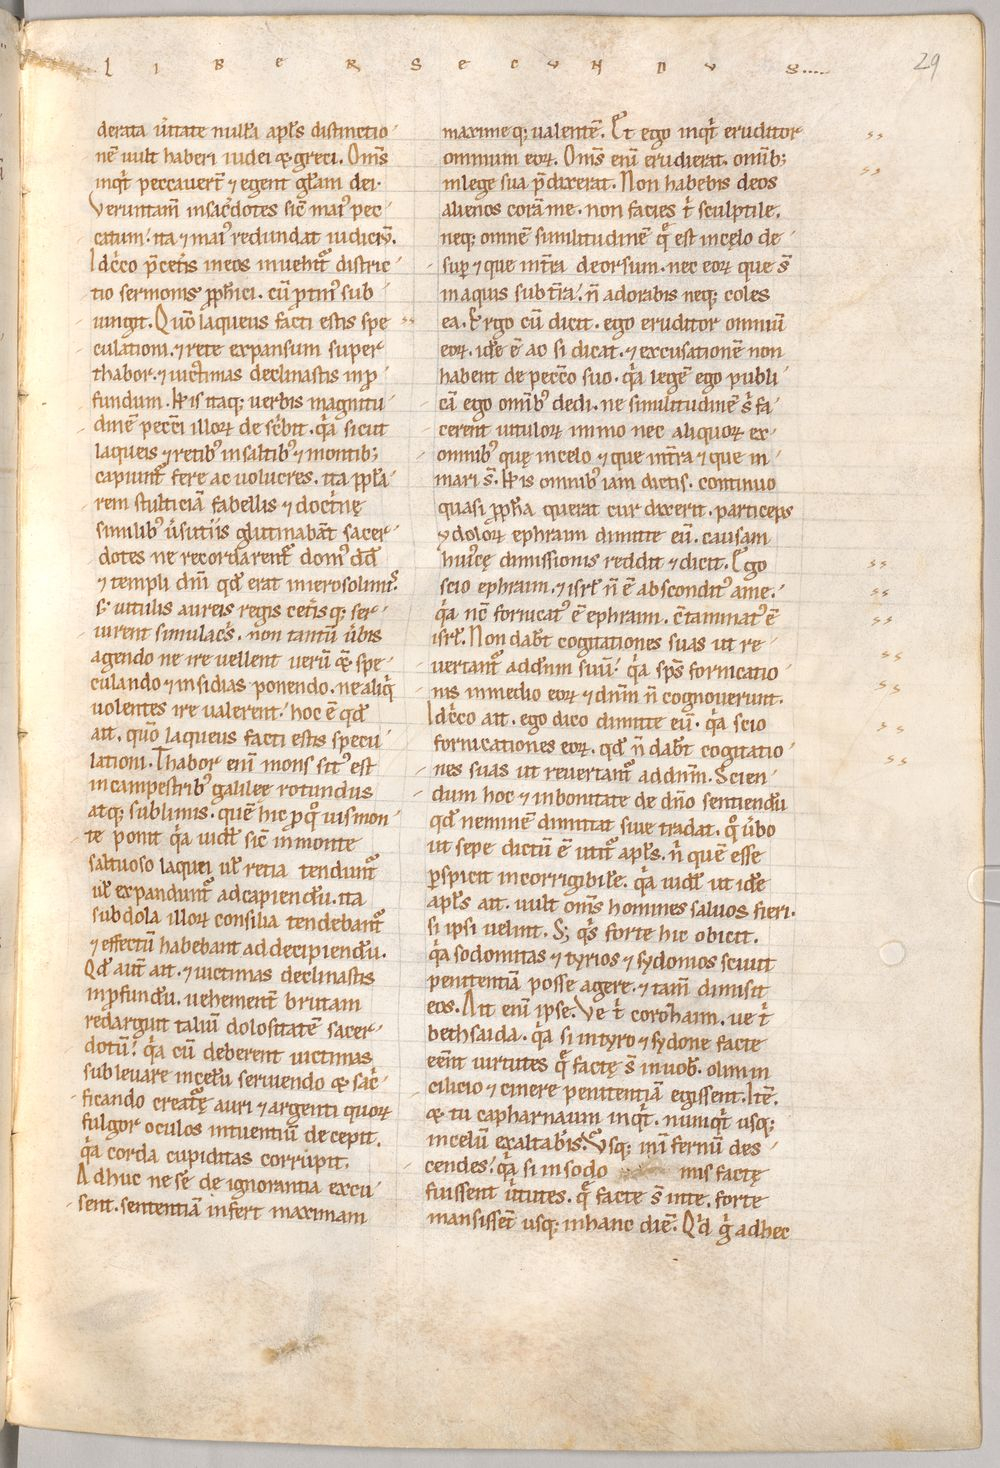 LIBER SECUNDUS.....
29
derata ūitate null᷑a apl̄s distinctio
nē uult haberi iudei & greci. Om̄s
inqͥt peccauer̄t ⁊ egent gl̄am dei.
Veruntam̄ insac̄dotes sic̄ mai᷒ pec
catum. ita ⁊ mai᷒ redundat iudiciū.
Idc̄co p̄cet̄is in eos inuehit᷑ distric
tio sermonis pph̄ici. cū ptin᷒ sub
iungit. Quō laqueus facti estis spe
culationi. ⁊ rete expansum super
thabor. ⁊ uictimas declinastis in p̄
fundum. His itaq; uerbis magnitu
dinē pecc̄i illoꝝ desc̄bit. qͥa sicut
laqueis ⁊ retib᷒ in saltib᷒ ⁊ montib;
capiunt᷑ fere ac uolucres. ita ppl̄a
rem stulticiā fabellis ⁊ doct̄nę
similib᷒ ūsutiis glutinabāt sacer
dotes ne recordarent᷑ dom᷒ dd̄
⁊ templi dn̄i qd̄ erat in ierosolimis.
s; uitulis aureis regis cet̄isq; ser
uirent simulac̄s. non tantū ūbis
agendo ne ire uellent uerū & spe
culando ⁊ insidias ponendo. ne aliqͥ
uolentes ire ualerent. hoc ē qd̄
ait. quō laqueus facti estis specu
lationi. Thabor eni᷑ mons sit᷒ est
in campestrib᷒ galilee rotundus
atq; sublimis. quē hic p̄ qͦ uis mon
te ponit qͥa uidl᷑ sic̄ in monte
saltuoso laquei ul᷑ retia tendunt᷑
ul᷑ expandunt᷑ ad capiendū. ita
subdola illoꝝ consilia tendebant᷑
⁊ effectū habebant ad decipiendū.
Qd̄ aut̄ ait. ⁊ uictimas declinastis
in p̄fundū. uehement̄ brutam
redarguit taliū dolositatē sacer
dotū. qͥa cū deberent uictimas
subleuare in celū seruiendo & sac̄
ficando creat᷑ę auri ⁊ argenti quoꝝ
fulgor oculos intuentiū decepit.
qͥa corda cupiditas corrupit.
Adhuc ne se de ignorantia excu
sent. sententiā infert maximam
maximeq; ualentē. Et ego inqͥt eruditor
omnium eoꝝ. Om̄s eni᷑ erudierat. omīb;
in lege sua p̄dixerat. Non habebis deos
alienos corā me. non facies tͥ sculptile.
neq; omnē similitudinē qͦ est in cęlo de
suꝑ ⁊ que in t̄ra deorsum. nec eoꝝ que s̄
in aquis sub t̄ra. n̄ adorabis neq; coles
ea. Ergo cū dicit. ego eruditor omniū
eoꝝ. id̄e ē ac si dicat. ⁊ excusationē non
habent de pecc̄o suo. qͥa legē ego publi
cā ego omīb᷒ dedi. ne similitudinē s̄ fa
cerent uituloꝝ immo nec aliquoꝝ ex
omnib᷒ quę in celo ⁊ que in t̄ra ⁊ que in
mari s̄. His omnib᷒ iam dictis. continuo
quasi pph̄a querat cur dixerit. particeps
ydoloꝝ ephraim dimitte eū. causam
hui᷒cę dimissionis reddit ⁊ dicit. Ego
scio ephraim. ⁊ isrl̄ n̄ ē abscondit᷒ a me.
qͥa nc̄ fornicat᷒ ē ephraim. c̄taminat᷒ ē
isrl̄. Non dab̄t cogitationes suas ut re
uertant᷑ ad dn̄m suū. qͥa sp̄s fornicatio
nis in medio eoꝝ ⁊ dn̄m n̄ cognouerunt.
Idc̄co ait. ego dico dimitte eū. qͥa scio
fornicationes eoꝝ. qd̄ n̄ dab̄t cogitatio
nes suas ut reuertant᷑ ad dn̄m. Scien
dum hoc ⁊ in bonitate de dn̄o sentiendū
qd̄ neminē dimittat siue tradat. qͦ ūbo
ut sepe dictū ē utit᷑ apl̄s. nͥ quē esse
ꝑspicit incorrigibile. qͥa uidl᷑ ut id̄e
apl̄s ait. uult om̄s homines saluos fieri.
si ipsi uelint. S; qͥs forte hic obicit.
qͥa sodomitas ⁊ tyrios ⁊ sydonios sciuit
penitentiā posse agere. ⁊ tam̄ dimisit
eos. Ait eni᷑ ipse. Ve tͥ corozhaim. ue tͥ
bethsaida. qͥa si in tyro ⁊ sydone facte
eēnt uirtutes qͦ factę s̄ in uob̄. olim in
cilicio ⁊ cinere penitentiā egissent. Itē.
& tu capharnaum inqͥt. numqͥt usq;
in celū exaltab̄is. Usq; in in̄fernū des
cendes. qͥa si in sodo mis factę
fuissent ūtutes. qͦ facte s̄ in te. forte
mansissēt usq; in hanc diē. Qͥd gͥ ad hec